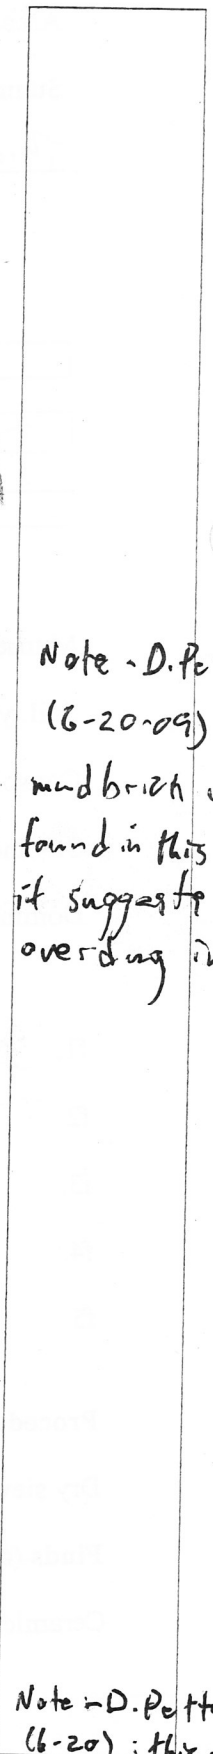 Note - D. Pe
(6-20-09)
mudbrick
found in this
it suggests
overdug in
Note - D. Pette
(6-20) : the